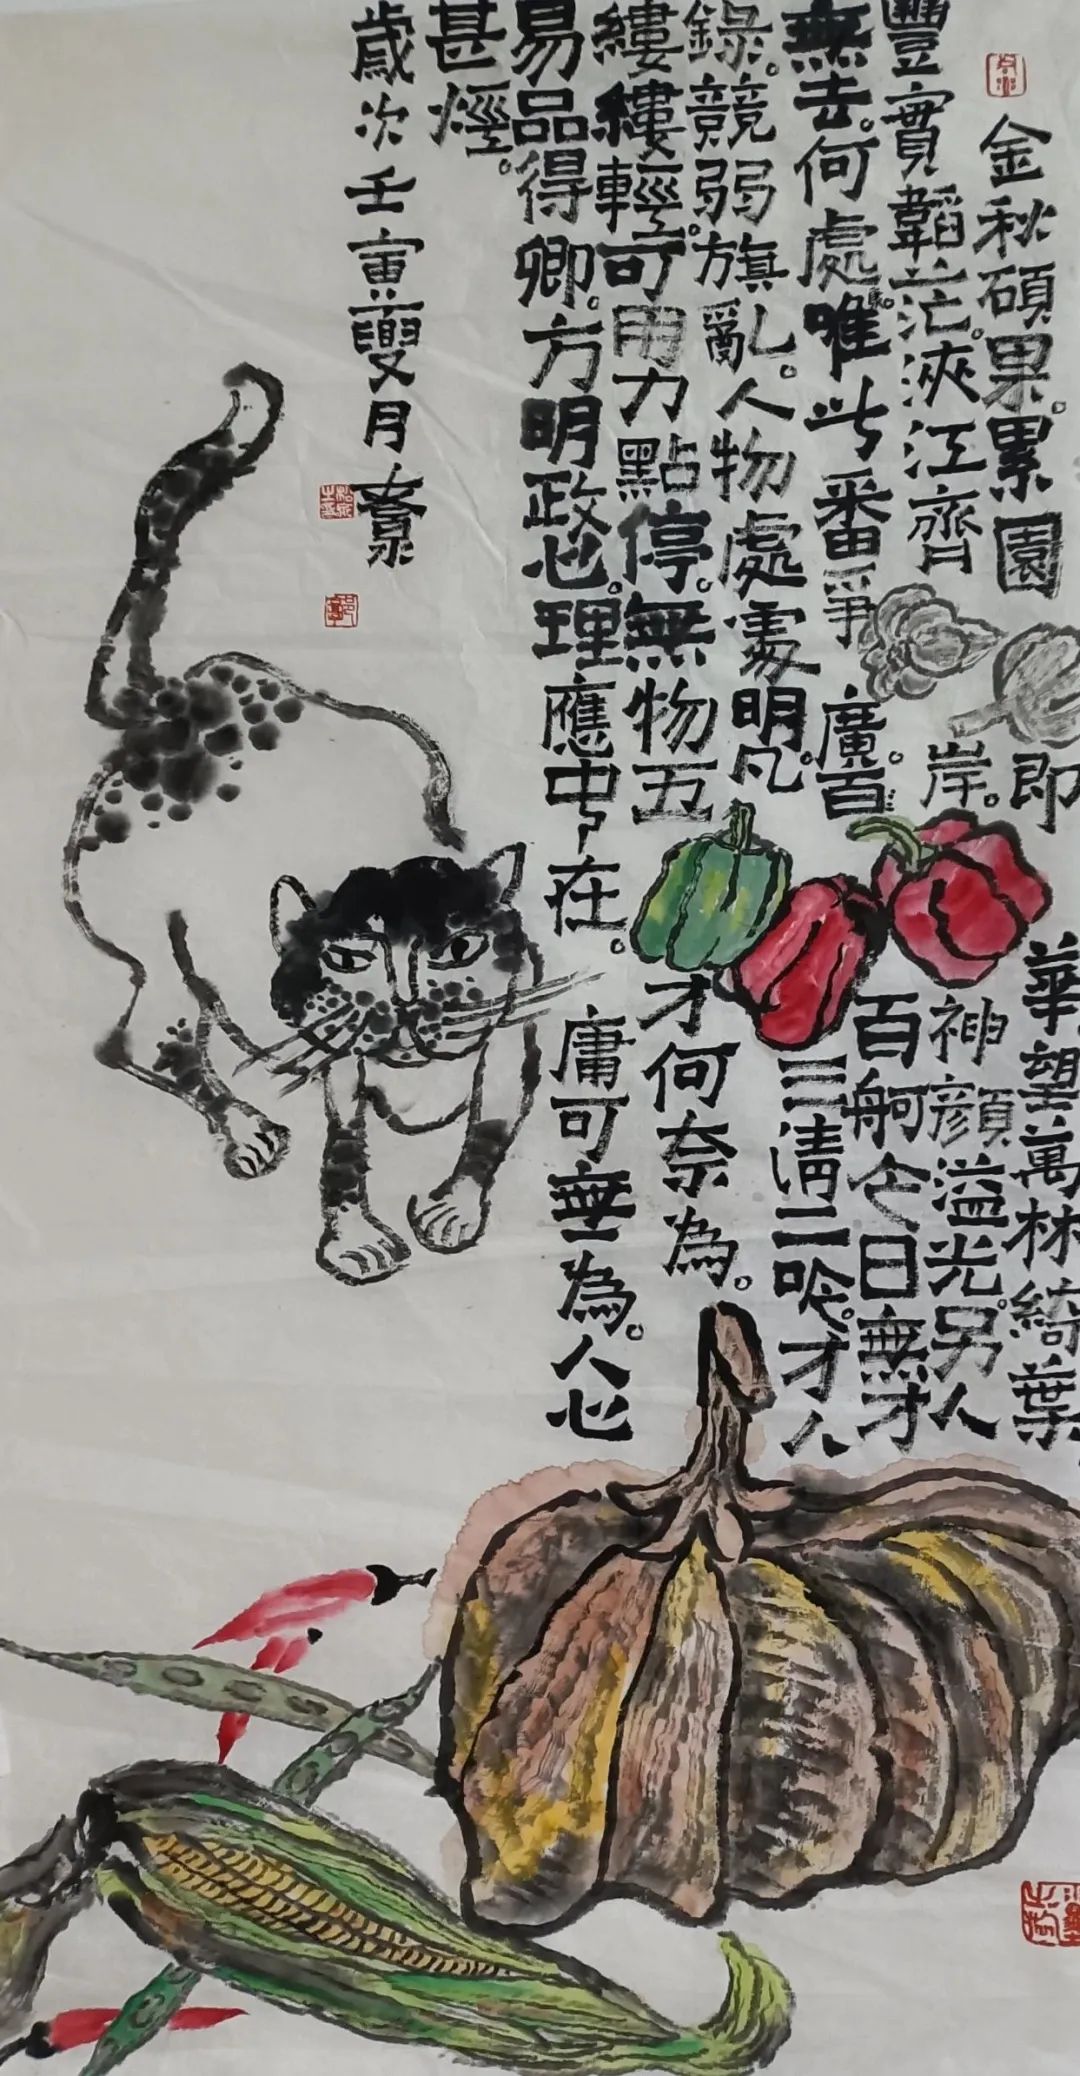 金秋碩果。累園即華望萬林綺葉
豐實韜茫。浹江齊岸。神顏溢光。另人
無去。何處唯此番爭廣。百百舸仑日無才
錄。競弱旗亂。人物處處明。凡三清二唫。才人
縷縷輕。可用力點停。無物五才何奈為。
易品得卿。方明政也。理應中在。庸可無為。人心
甚煙。
歲次壬寅 月